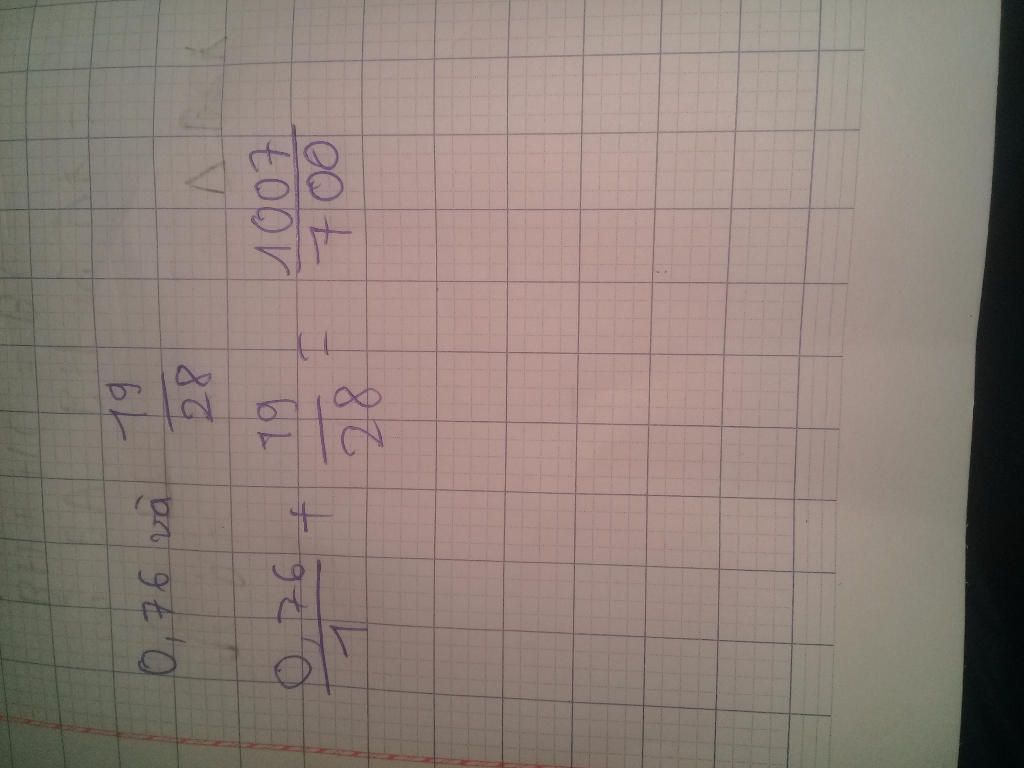 0,76 và 19/28
0,76/1 + 19/28 = 1007/700